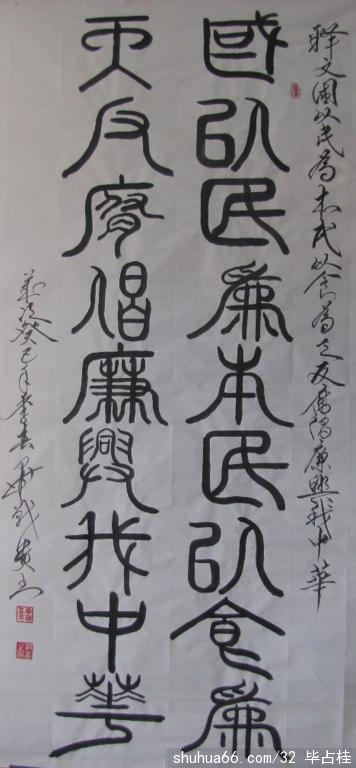 释文國以民為本民以食為天反腐倡廉興我中華
國以民為本民以食為
天反腐倡廉興我中華
癸巳年
shuhua66.com/32 毕占桂